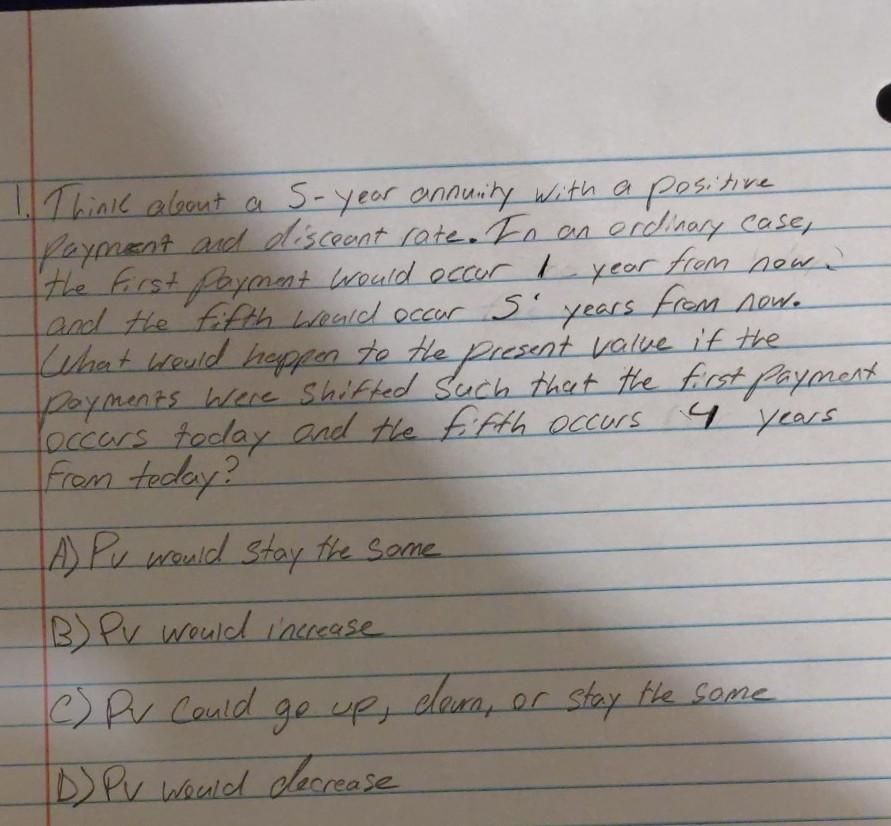 1. Think about a 5-year annuity with a positive
payment and discount rate. In an ordinary case,
the first payment would occur 1 year from now.
and the fifth would occur 5 years from now.
What would happen to the present value if the
payments were shifted such that the first payment
occurs today and the fifth occurs 4 years
from today?
A) PV would stay the same
B) PV would increase
C) PV could go up, down, or stay the same
D) PV would decrease